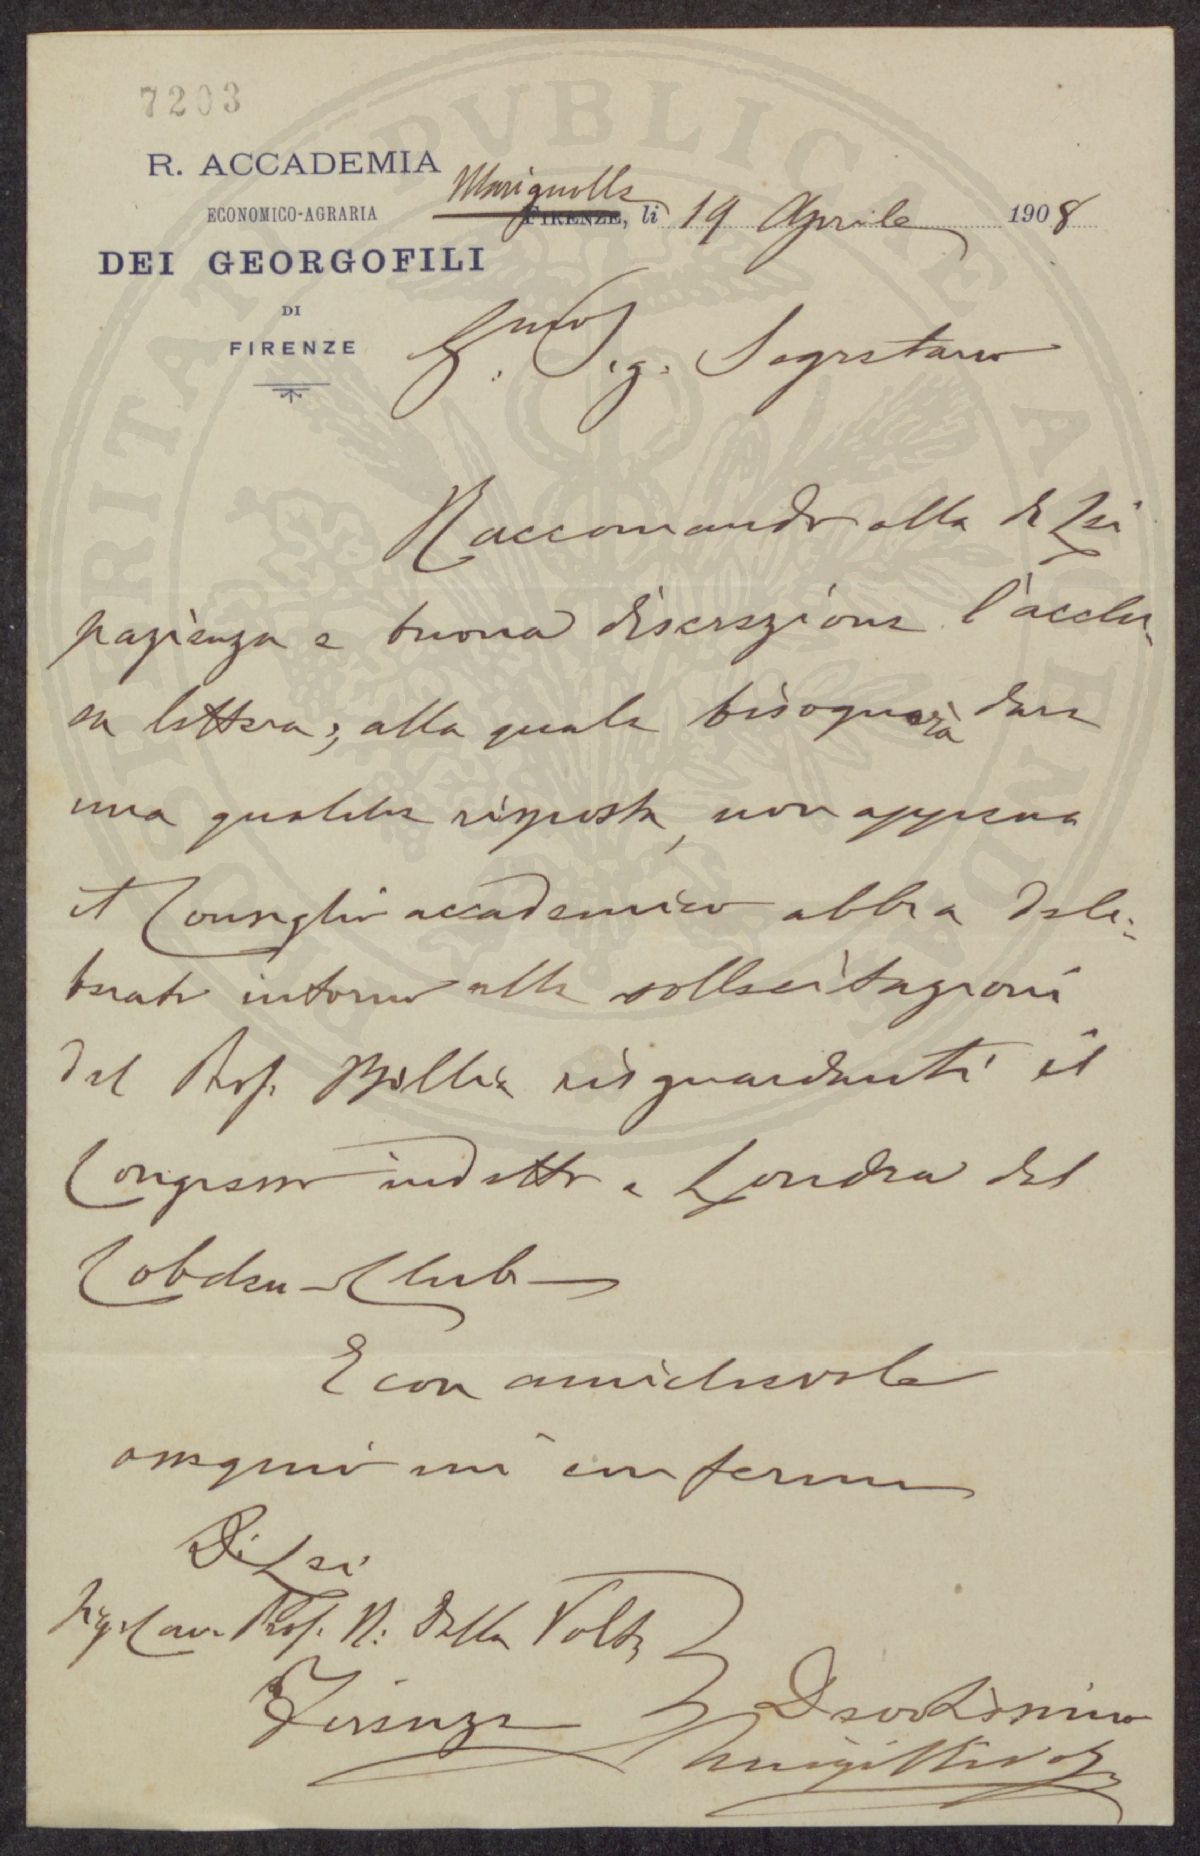 7203
R. ACCADEMIA
ECONOMICO-AGRARIA
DEI GEORGOFILI
DI
FIRENZE
Marignolle
FIRENZE, li 19 Aprile 1908
Sig. Segretario
Raccomando alla di Lei
pazienza e buona discrezione l'acclu-
sa lettera; alla quale bisognerà dare
una qualche risposta, non appena
il Consiglio accademico abbia deli-
berato intorno alle sollecitazioni
del Prof. risguardanti il
Congresso indetto a Londra dal
Cobden-Club
E con amichevole
ossequio mi confermo
Di Lei
Sig. Cav. Prof. N. Dalla Volta
Firenze
Devotissimo